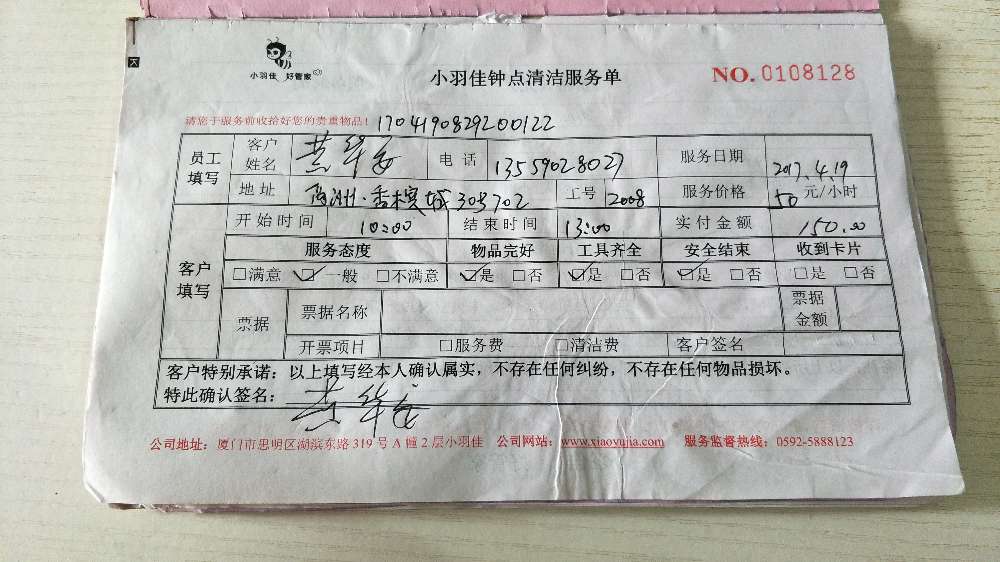 小羽佳 好管家
小羽佳钟点清洁服务单
NO. 0108128
请您于服务前收拾好您的贵重物品! 170419082920012​2
员工填写 客户姓名 电话 13559028027 服务日期 2017.4.19
地址 禹洲·香槟城305702 工号 2008 服务价格 50 元/小时
客户填写 开始时间 10:00 结束时间 13:00 实付金额 150.00
服务态度 物品完好 工具齐全 安全结束 收到卡片
□满意 ☑一般 □不满意 ☑是 □否 ☑是 □否 ☑是 □否 □是 □否
票据 票据名称 票据金额
开票项目 □服务费 □清洁费 客户签名
客户特别承诺:以上填写经本人确认属实,不存在任何纠纷,不存在任何物品损坏。
特此确认签名:
公司地址:厦门市思明区湖滨东路319号A幢2层小羽佳 公司网站:www.xiaoyujia.com 服务监督热线:0592-5888123